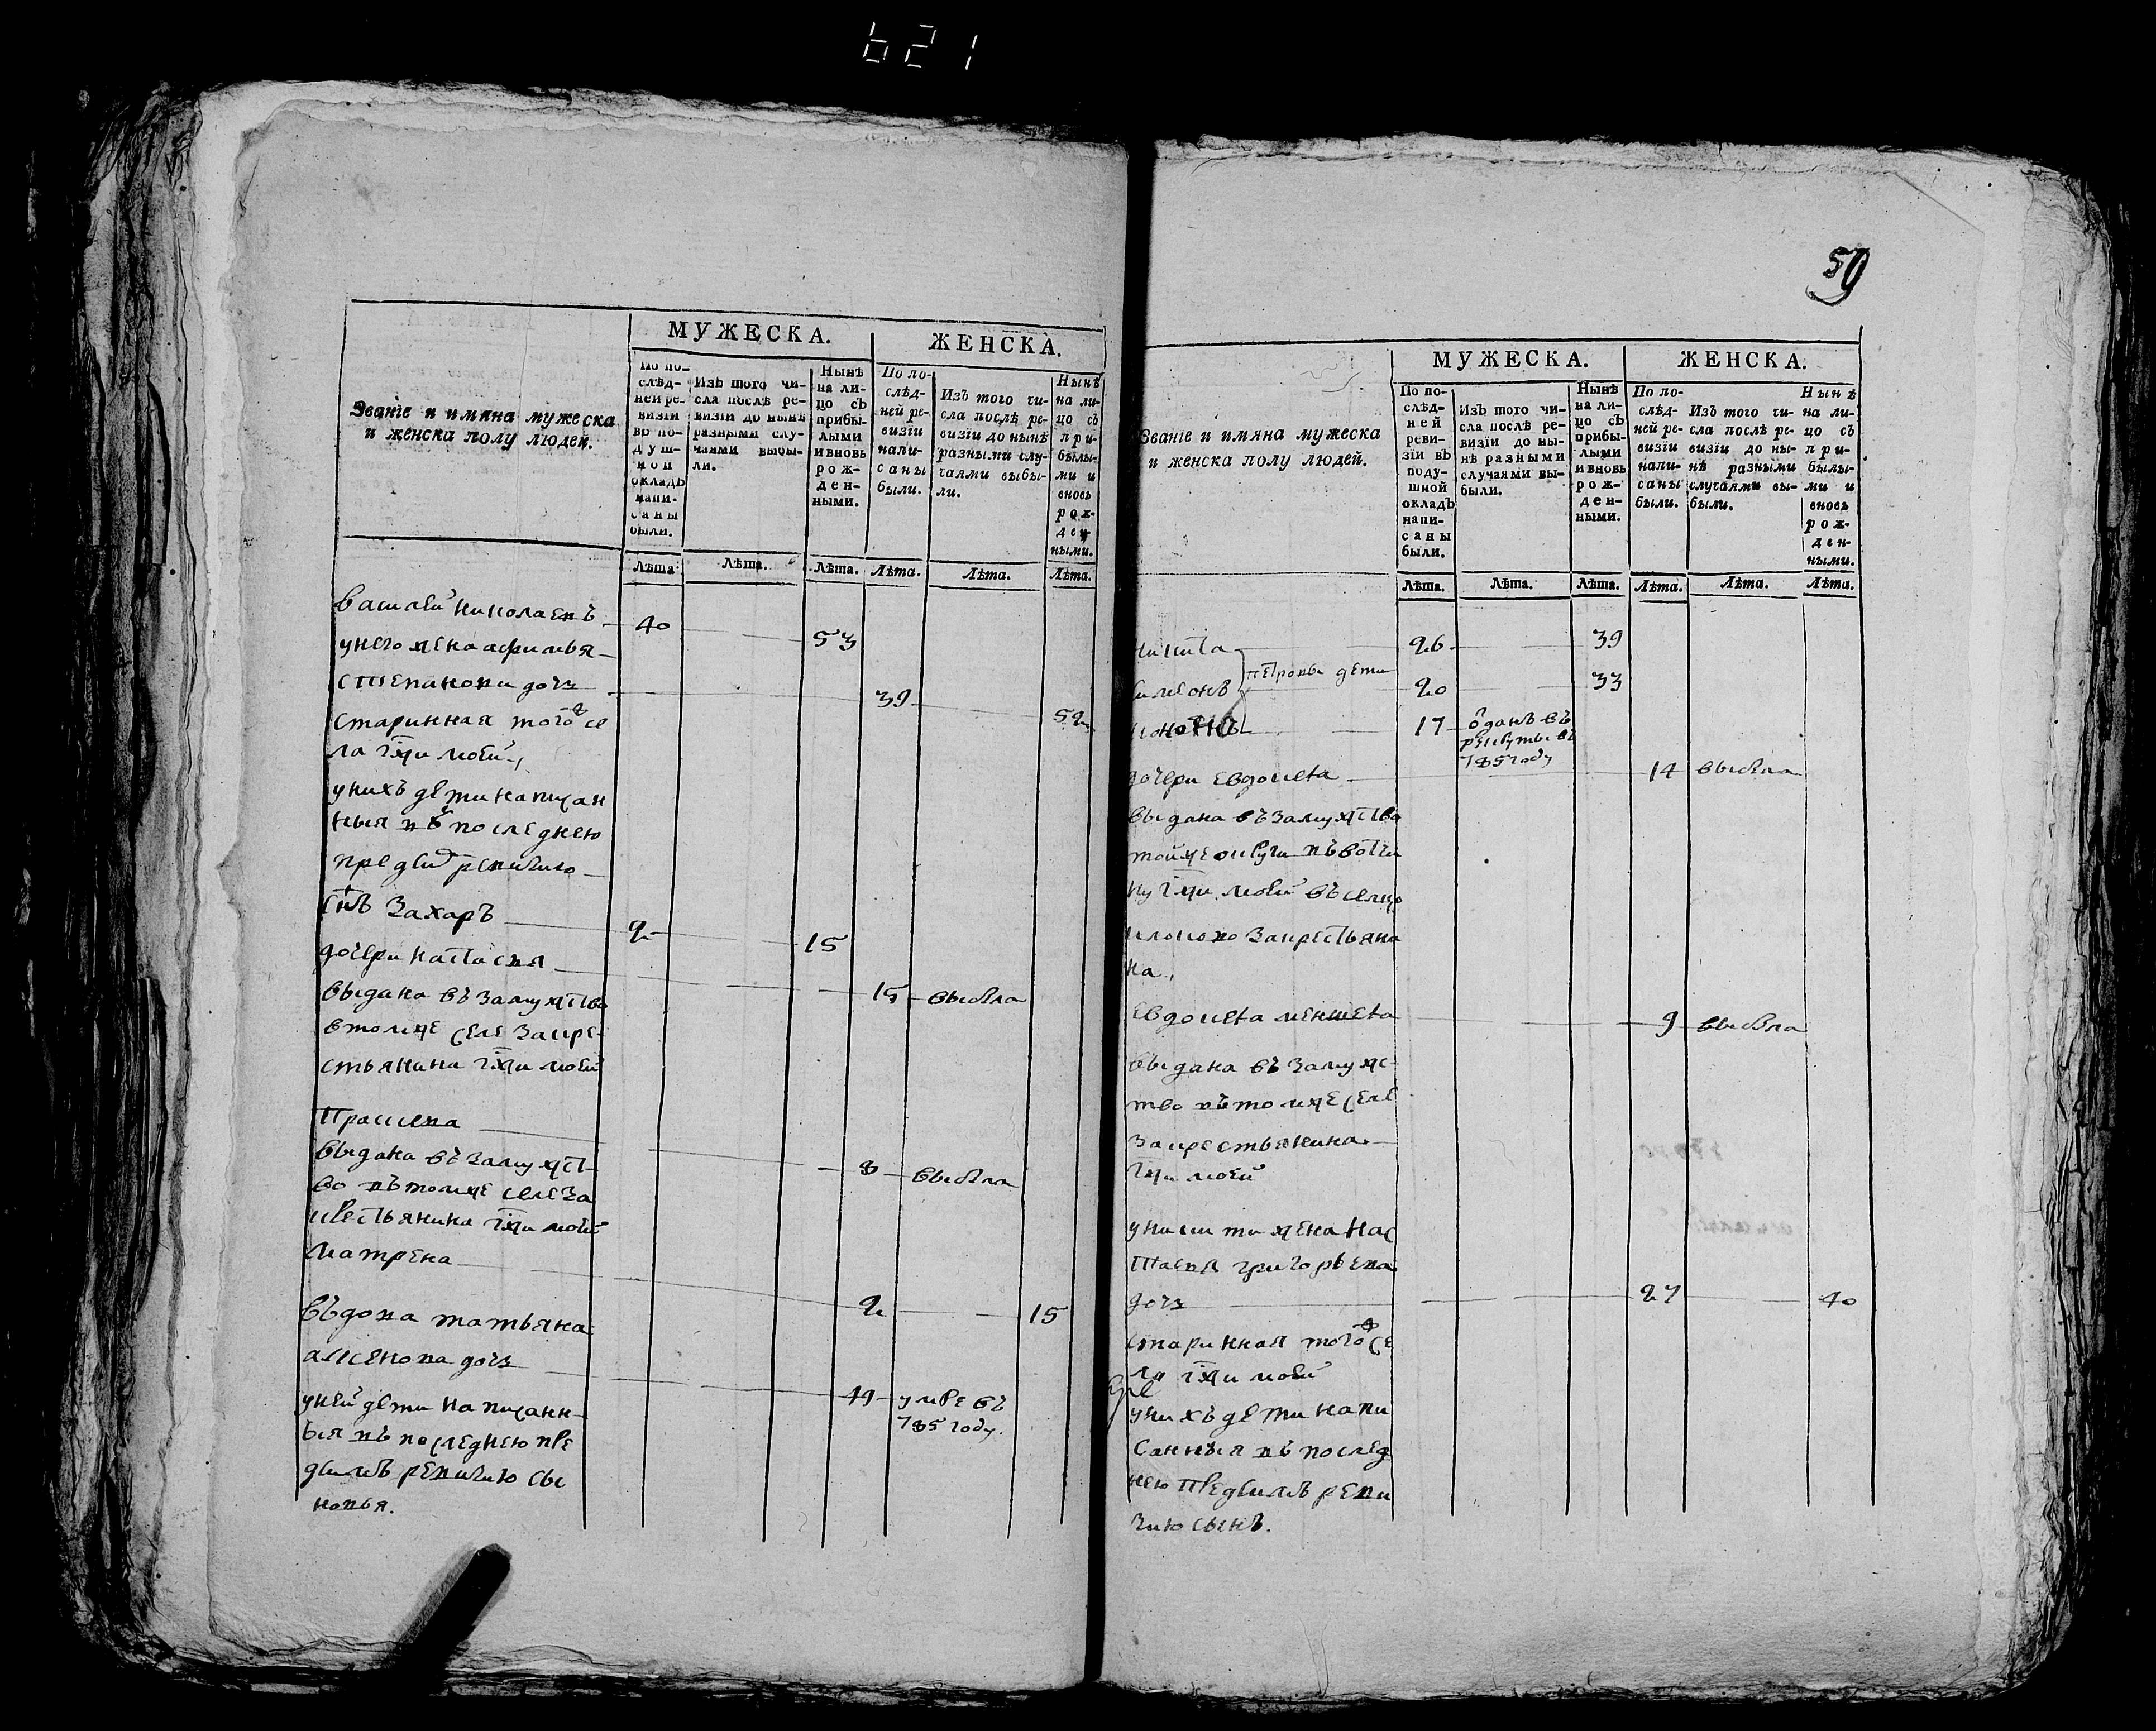 621
МУЖЕСКА. ЖЕНСКА.
Званїе и имяна мужеска
и женска полу людей.
По по-
слѣд-
ней ре-
визїи
въ по-
душ-
ной
окладъ
напи-
саны
были.
Изъ того чи-
сла послѣ ре-
визїи до нынѣ
разными слу-
чаями выбы-
ли.
Нынѣ
на ли-
цо съ
прибы-
лыми
и вновь
рож-
ден-
ными.
По по-
слѣд-
ней ре-
визїи
напи-
саны
были.
Изъ того чи-
сла послѣ ре-
визїи до нынѣ
разными слу-
чаями выбы-
ли.
Нынѣ
на ли-
цо съ
при-
былы-
ми и
вновь
рож-
ден-
ными.
Лѣта. Лѣта. Лѣта. Лѣта. Лѣта. Лѣта.
василей николаевъ 40 53
унего жена афимья
степанова дочь 39 52
старинная того се
ла гжи моей
унихъ дети написан
ныя въ последнею
пред сим ревизию
снъ захаръ 2 15
дочери настасья 15 выбыла
выдана въ замужство
в томже селе за кре
стьянина гжи моей
Прасковя 8 выбыла
выдана въ замужст
во въ томже селе за
крестьянина гжи моей
матрена 2 15
въдова татьяна
аксенова дочь 49 умре въ
785 году
уней дети написанн
ыя въ последнею пре
д симъ ревизию сы
новья.
59
МУЖЕСКА. ЖЕНСКА.
Званїе и имяна мужеска
и женска полу людей.
По по-
слѣд-
ней
реви-
зїи въ
поду-
шной
окладъ
напи-
саны
были.
Изъ того чи-
сла послѣ ре-
визїи до ны-
нѣ разными
случаями вы-
были.
Нынѣ
на ли-
цо съ
прибы-
лыми
и вновь
рож-
ден-
ными.
По по-
слѣд-
ней ре-
визїи
напи-
саны
были.
Изъ того чи-
сла послѣ ре-
визїи до ны-
нѣ разными
случаями вы-
были.
Нынѣ
на ли-
цо съ
при-
былы-
ми и
вновь
рож-
ден-
ными.
Лѣта. Лѣта. Лѣта. Лѣта. Лѣта. Лѣта.
никита 26 39
петровы дети
симеонъ 20 33
17 отданъ въ
рекруты въ
785 году
дочери евдокея 14 выбыла
выдана въ замужство
тойже округи въ вотчи
ну гжи моей въ селцо
за крестьяни
на
евдокея меншея 9 выбыла
выдана въ замужс
тво въ томже селе
за крестьянина
гжи моей
у никиты жена нас
тасья григорьева
дочь 27 40
старинная того се
ла гжи моей
унихъ дети напи
санныя въ послед
нею пред симъ реви
зию сынъ.